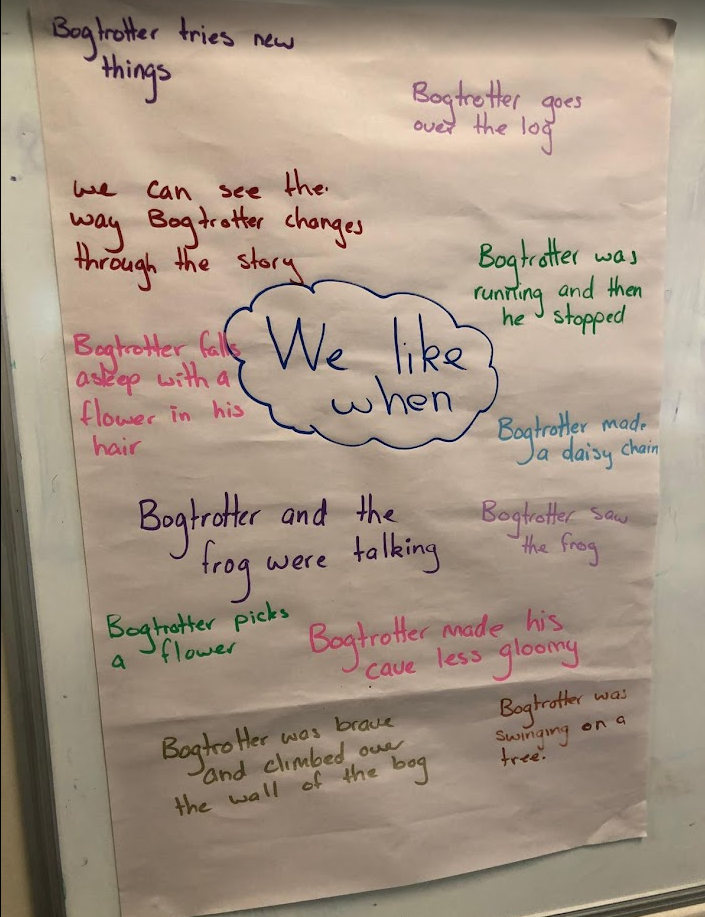 Bogtrotter tries new
things
Bogtrotter goes
over the log
we can see the
way Bogtrotter changes
through the story
Bogtrotter was
running and then
he stopped
We like
when
Bogtrotter falls
asleep with a
flower in his
hair
Bogtrotter made
a daisy chain
Bogtrotter and the
frog were talking
Bogtrotter saw
the frog
Bogtrotter picks
a flower
Bogtrotter made his
cave less gloomy
Bogtrotter was brave
and climbed over
the wall of the bog
Bogtrotter was
swinging on a
tree.